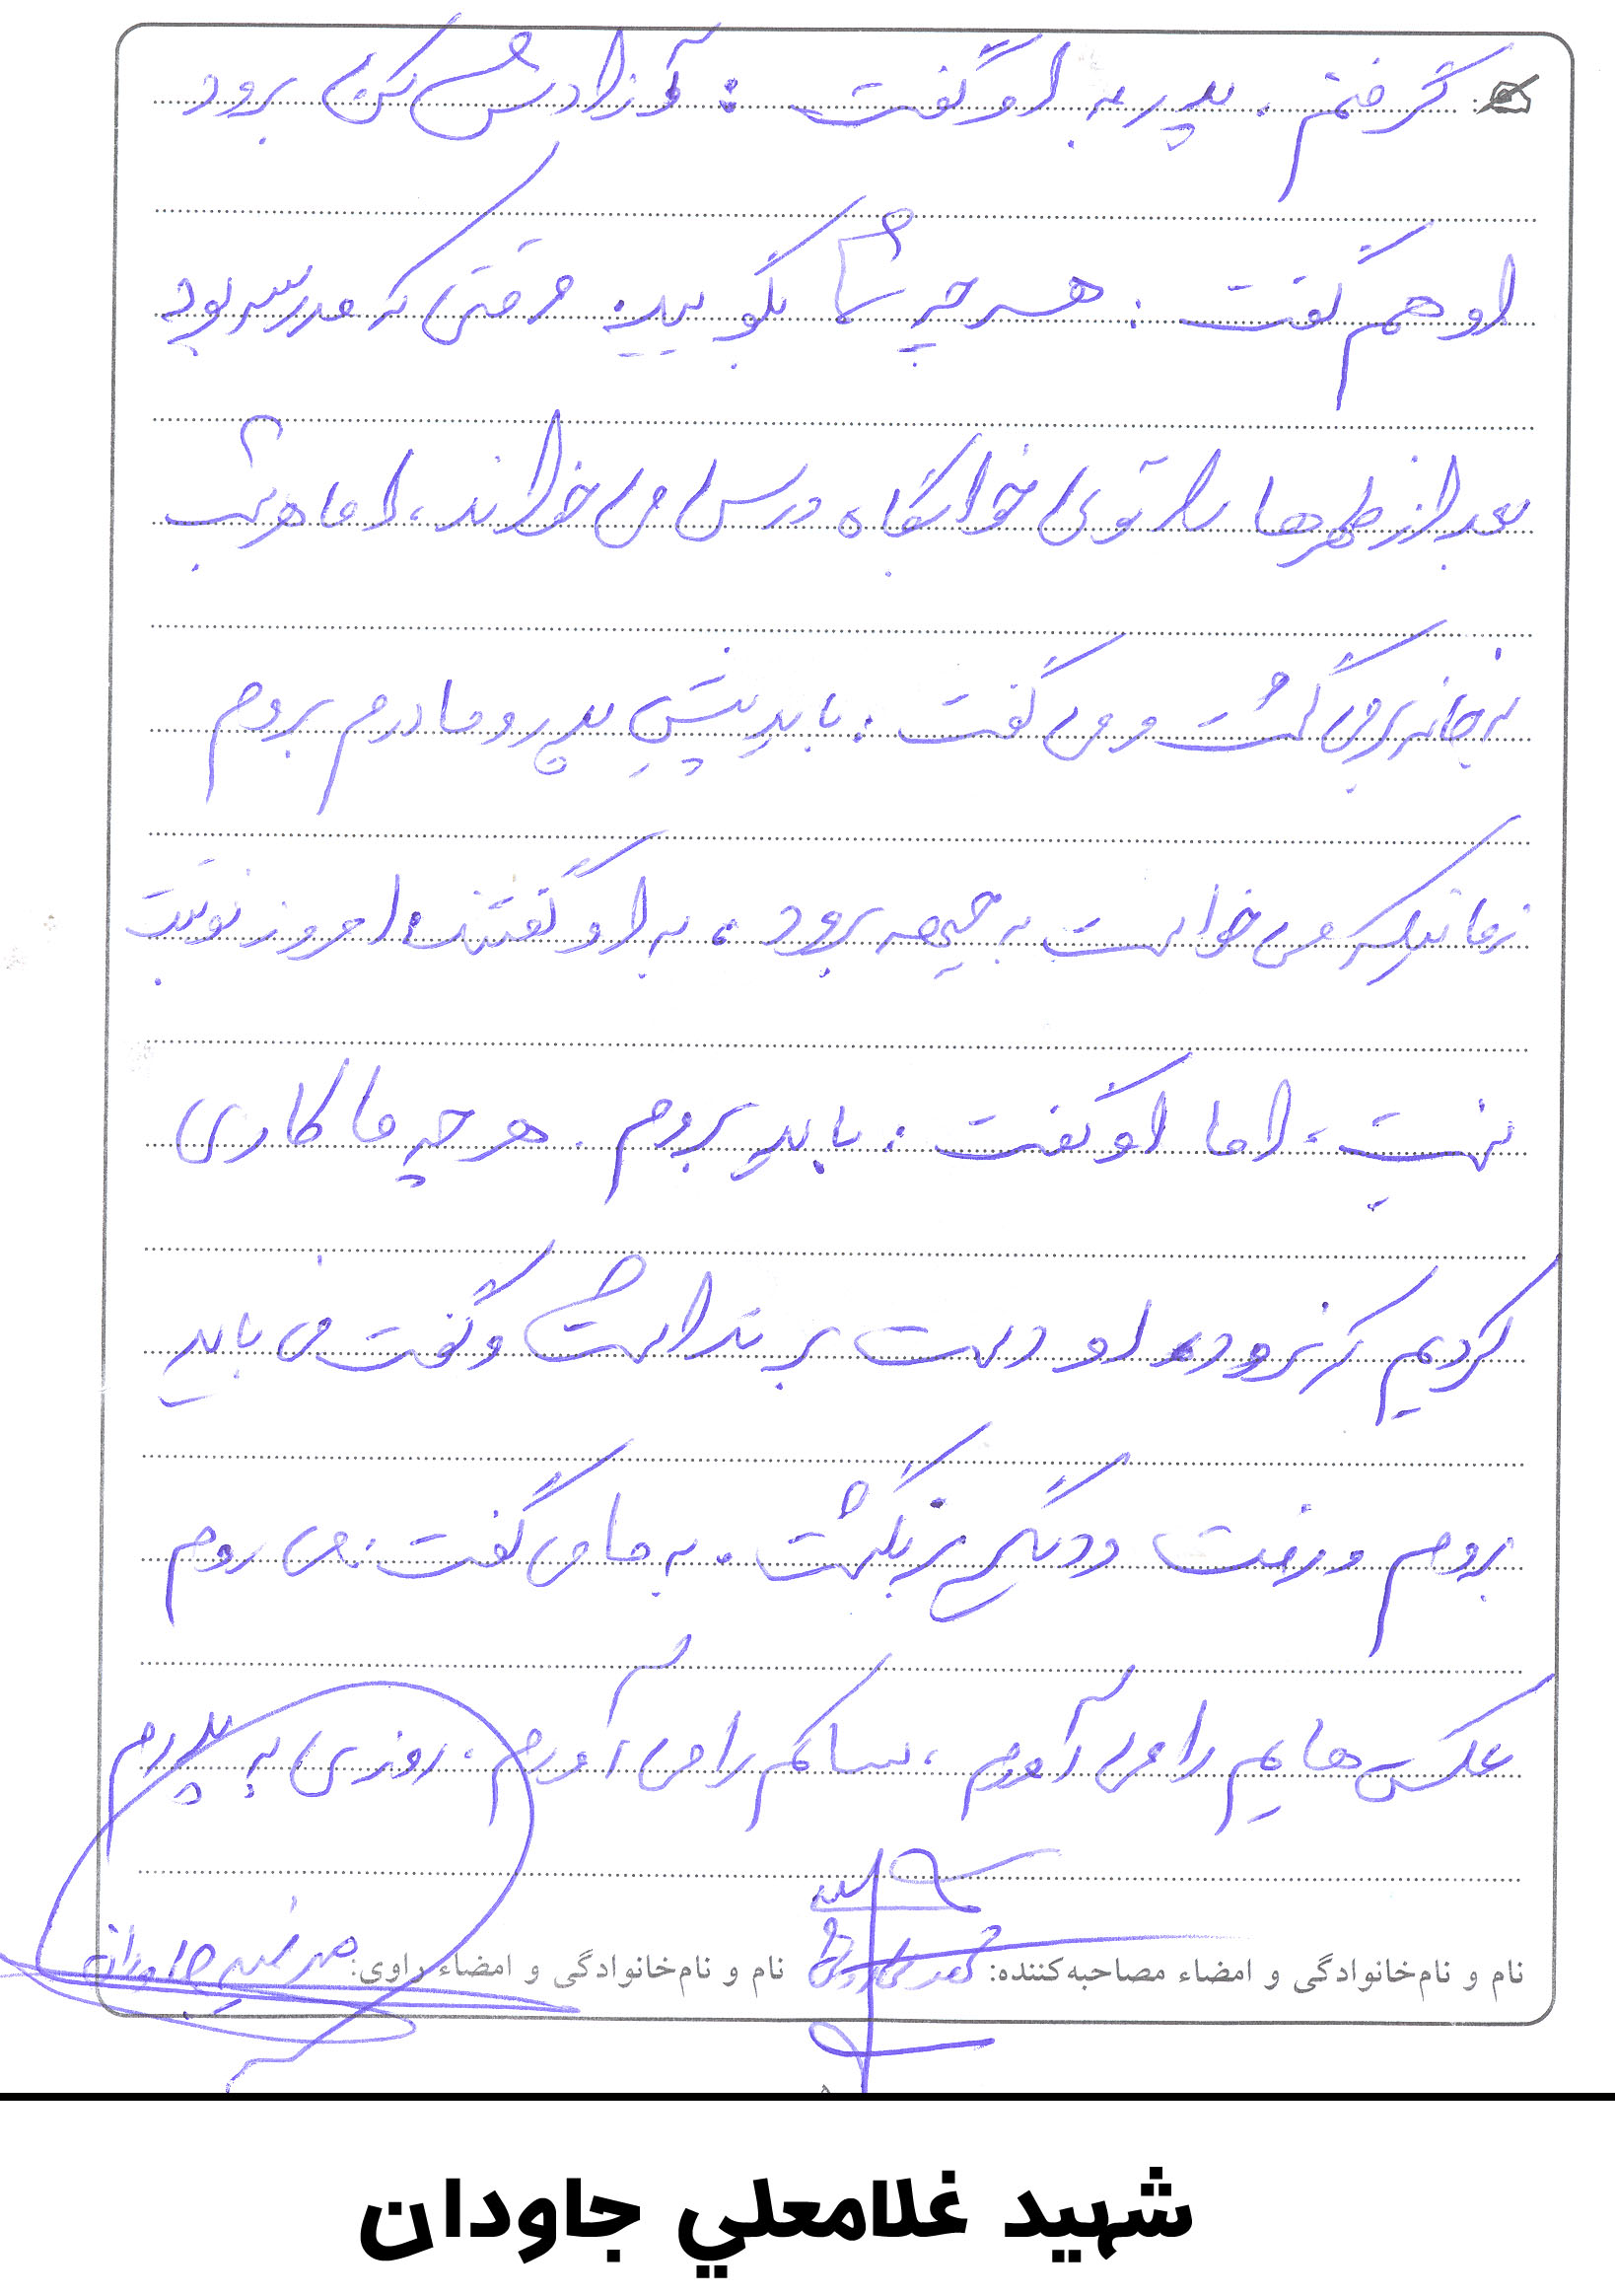 گرفتم. پدر به او گفت: آزادش کن برود
او هم گفت: هر چه شما بگویید. وقتی که مدرسه بود
بعد از ظهرها را توی خوابگاه درس می خواند، اما هر شب
به خانه برمی گشت و می گفت: باید پیشِ پدر و مادرم بروم
زمانیکه می خواست به جبهه برود، به او گفتند امروز نوبتت
نیست، اما او گفت: باید بروم. هر چه ما کاری
کردیم که نرود، او دست بر نداشت و گفت من باید
بروم و رفت و دیگر برنگشت. به ما می گفت: می روم
عکس هایم را می آورم، ساکم را می آورم. روزی به پدرم
نام و نام‌خانوادگی و امضاء مصاحبه‌کننده: نام و نام‌خانوادگی و امضاء راوی: جاودان
شهید غلامعلي جاودان